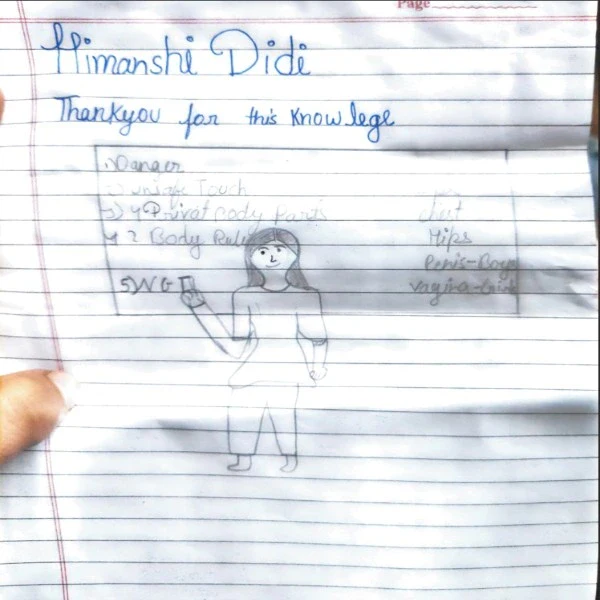 Page
Himanshi Didi
Thankyou for this Knowlege
1) Danger
2) unsafe Touch
3) 4 Privat body Parts
4 2 Body Rule
5) NG
chest
Hips
Penis-Boy
Vagina-Girls